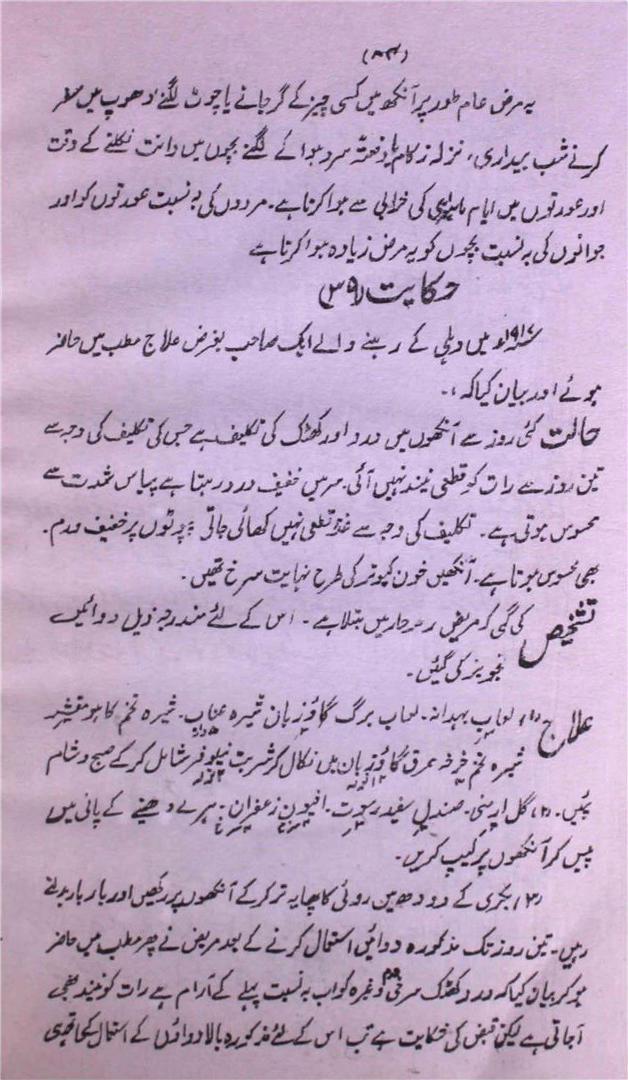 (۸۴)
یہ مرض عام طور پر آنکھ میں کسی چیز کے گر جانے یا چوٹ لگنے دھوپ میں سفر
کرنے شب بیداری، نزلہ زکام یا دفعتہ سرد ہوا کے لگنے بچوں میں دانت نکلنے کے وقت
اور عورتوں میں ایام ماہواری کی خرابی سے ہوا کرتا ہے۔ مردوں کی بہ نسبت عورتوں کو اور
جوانوں کی بہ نسبت بچوں کو یہ مرض زیادہ ہوا کرتا ہے
حکایت ۳۹
سنہ ۱۹۱۷ء میں دہلی کے رہنے والے ایک صاحب بغرض علاج مطب میں حاضر
ہوئے اور بیان کیا کہ:۔
حالت کئی روز سے آنکھوں میں درد اور کھٹک کی تکلیف ہے جس کی تکلیف کی وجہ سے
تین روز سے رات کو قطعی نیند نہیں آئی۔ سر میں خفیف درد رہتا ہے پیاس شدت سے
محسوس ہوتی ہے۔ تکلیف کی وجہ سے غذا قطعی نہیں کھائی جاتی پپوٹوں پر خفیف ورم۔
بھی محسوس ہوتا ہے۔ آنکھیں خون کبوتر کی طرح نہایت سرخ تھیں۔
تشخیص کی گئی کہ مریض رمد حار میں مبتلا ہے۔ اس کے لئے مندرجہ ذیل دوائیں
تجویز کی گئیں۔
علاج (۱) لعاب بہدانہ۔ لعاب برگ گاؤزبان شیرہ عناب۔ شیرہ تخم کاہو مقشر
شیرہ تخم خرفہ عرق گاؤزبان میں نکال کر شربت نیلوفر شامل کر کے صبح و شام
پئیں۔ (۲) گل ارمنی۔ صندل سفید رسوت۔ افیون زعفران۔ ہرے دھنیے کے پانی میں
پیس کر آنکھوں پر لیپ کریں۔
(۳) بکری کے دودھ میں روئی کا پھایہ تر کر کے آنکھوں پر رکھیں اور بار بار بدلتے
رہیں۔ تین روز تک مذکورہ دوائیں استعمال کرنے کے بعد مریض نے پھر مطب میں حاضر
ہو کر بیان کیا کہ درد کھٹک سرخی ورم وغیرہ کو اب بہ نسبت پہلے کے آرام ہے رات کو نیند بھی
آجاتی ہے لیکن قبض کی شکایت ہے تب اس کے لئے مذکورہ بالا دواؤں کے استعمال کے ساتھ ہی